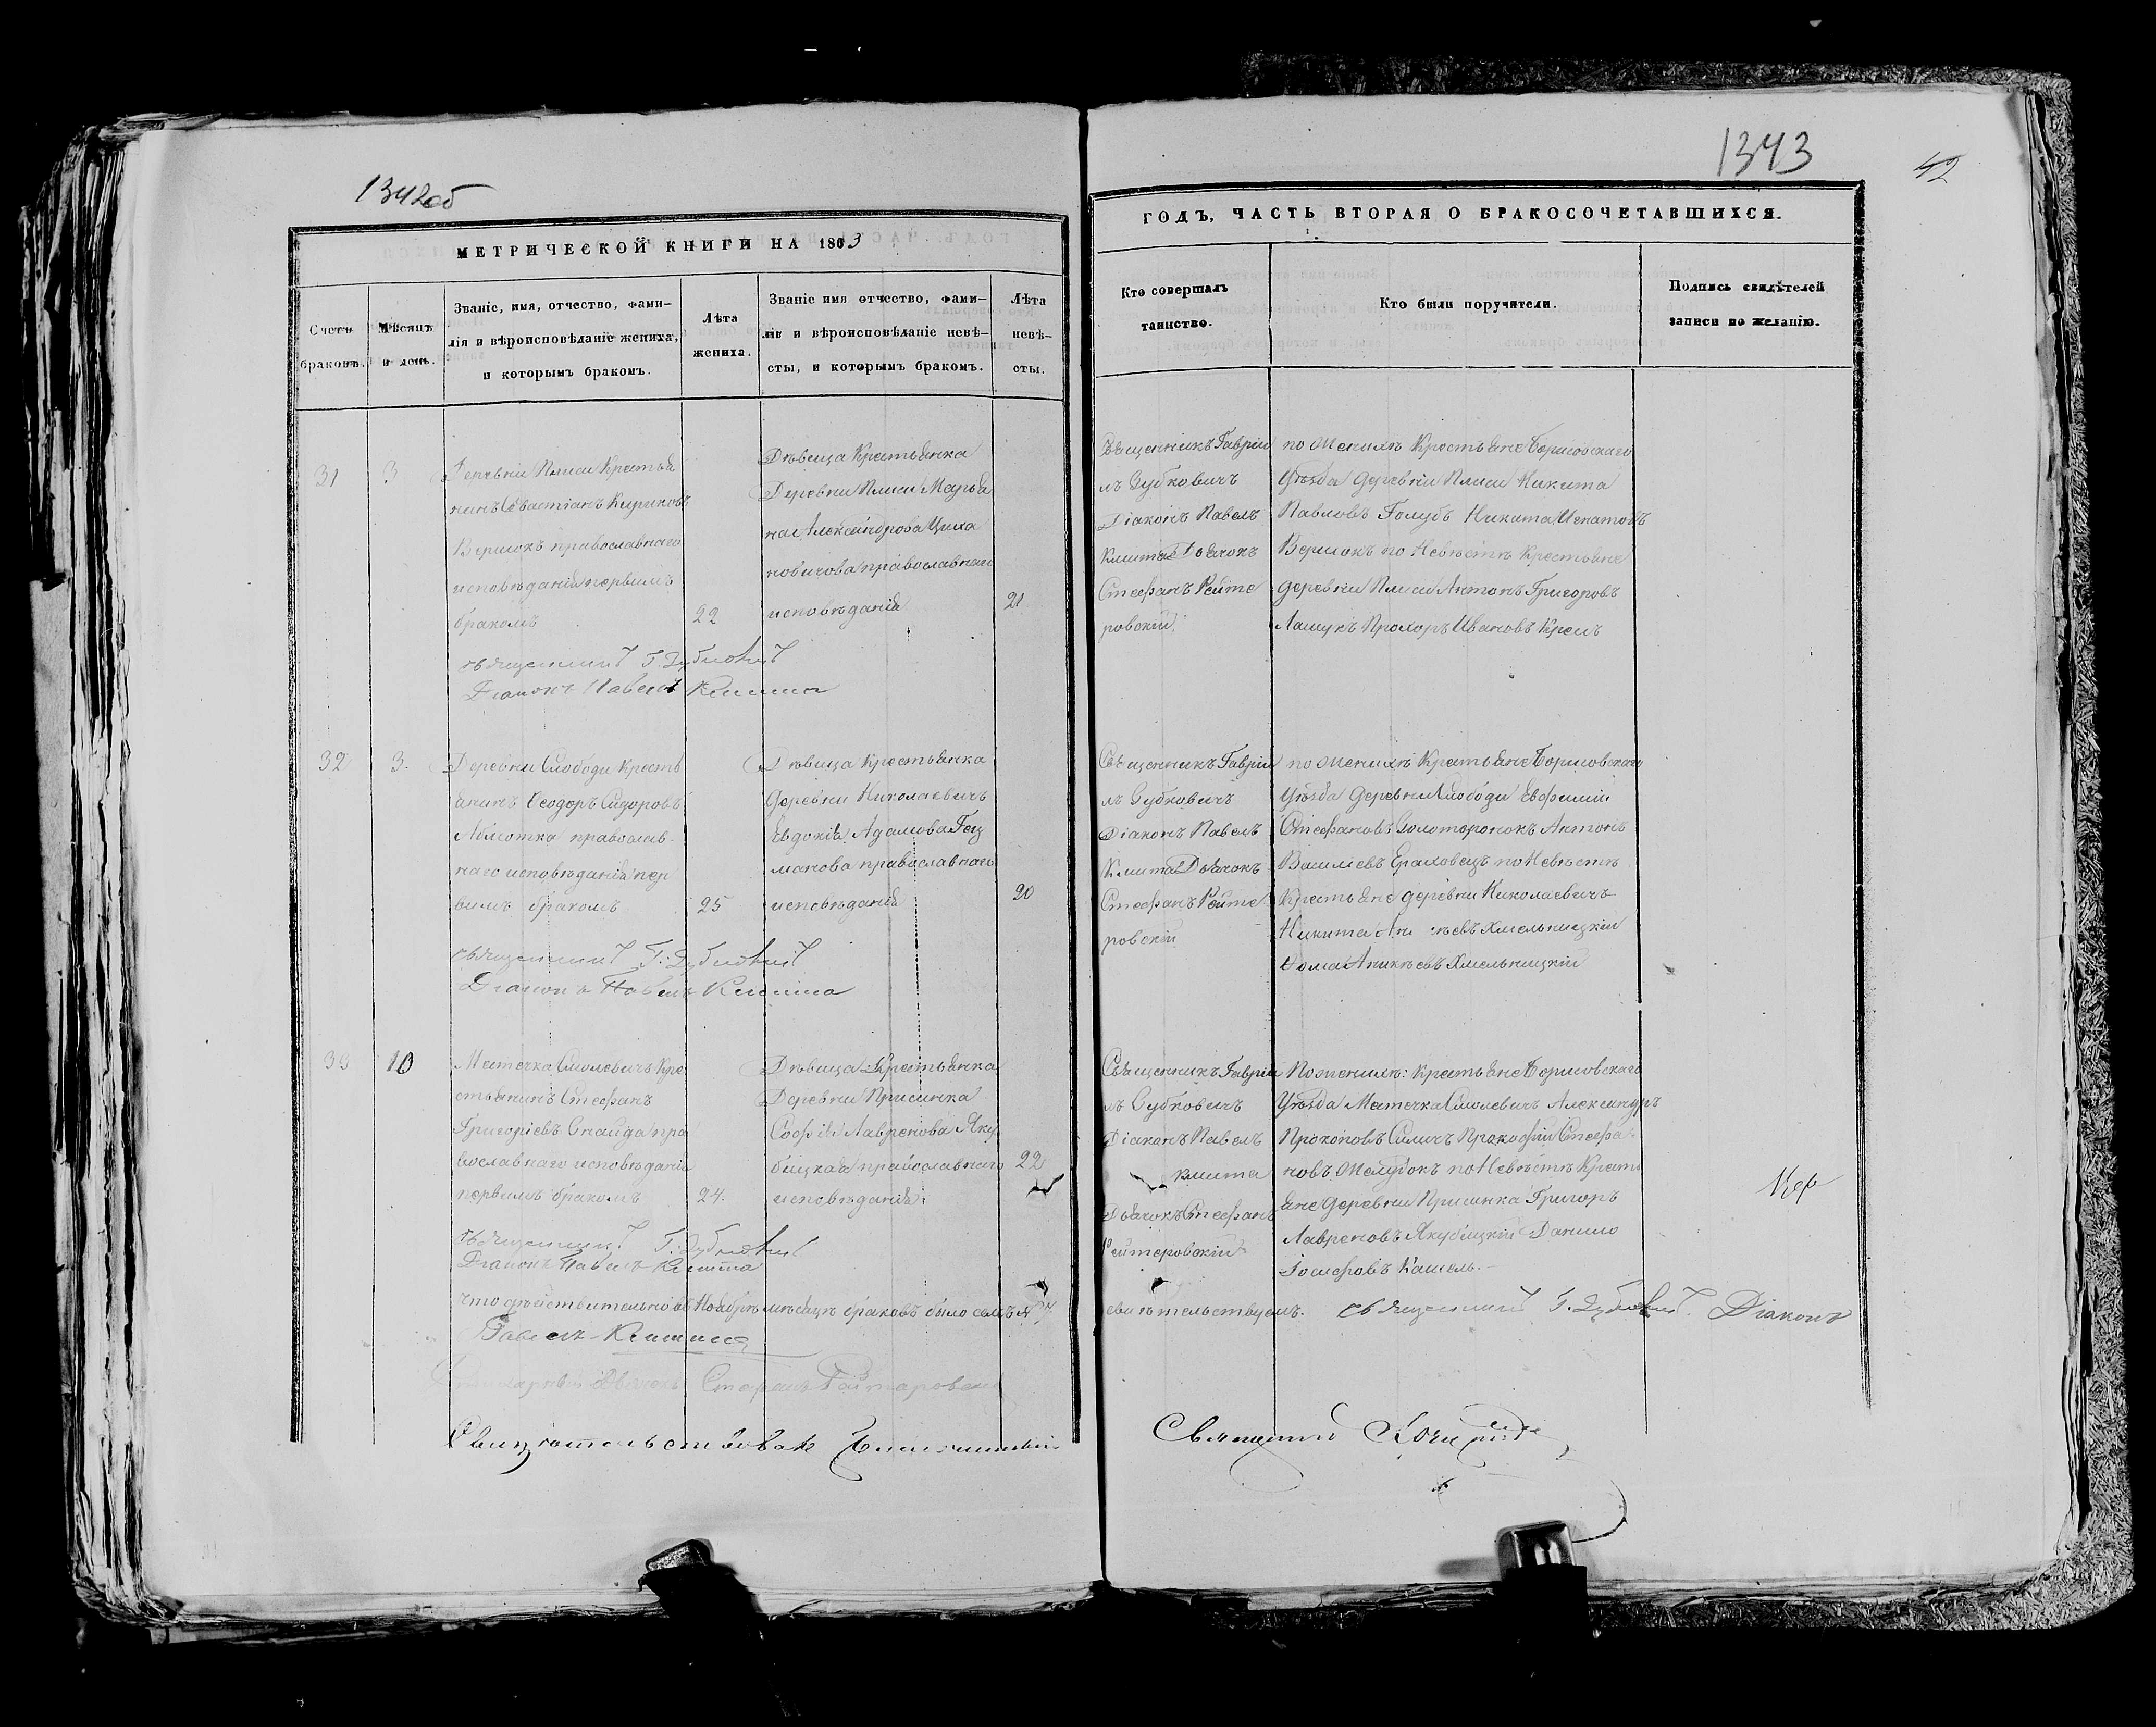 1342об
МЕТРИЧЕСКОЙ КНИГИ НА 1863
Счетъ браковъ.
Мѣсяцъ и день.
Званіе, имя, отчество, фами-
лія и вѣроисповѣданіе жениха,
и которымъ бракомъ.
Лѣта
жениха.
Званіе имя отчество, фами-
лія и вѣроисповѣданіе невѣ-
сты, и которымъ бракомъ.
Лѣта
невѣ-
сты.
31
3
Деревни Плиси Крестья
нинъ Севастіанъ Кириковъ
Вершокъ православнаго
исповѣданія первымъ
бракомъ
22
Дѣвица Крестьянка
Деревни Плиси Марья
на Александрова Циха
новичова православнаго
исповѣданія
21
священникъ Г. Зубковичъ
Діаконъ Павелъ Клишта
32
3.
Деревни Слободи Кресть
янинъ Ѳеодоръ Сидоровъ
православ-
наго исповѣданія пер
вымъ бракомъ
25
Дѣвица Крестьянка
деревни Николаевичъ
Евдокія Адамова Гец
манова православнаго
исповѣданія
20
священникъ Г. Зубковичъ
Діаконъ Павелъ Клишта
33
10
Местечка Смолевичъ Кре
стьянинъ Стефанъ
Григоріевъ Снайда пра
вославнаго исповѣданія
первымъ бракомъ
24.
Дѣвица Крестьянка
Деревни Присинка
Софія Лавренова Яку
бицкая православнаго
исповѣданія.
22
священникъ Г. Зубковичъ
Діаконъ Павелъ Клишта
что действительно въ Ноябрѣ мѣсяцѣ браковъ было семь № 7.
Павелъ Клишта
Дьячокъ Стефанъ Рейтеровскій
Свидѣтельствовалъ
1343
42
ГОДЪ, ЧАСТЬ ВТОРАЯ О БРАКОСОЧЕТАВШИХСЯ.
Кто совершалъ
таинство.
Кто были поручители.
Подпись свидѣтелей
записи по желанію.
Священникъ Гавріи
лъ Зубковичъ
Діаконъ Павелъ
Клишта Дьячокъ
Стефанъ Рейте
ровскій.
по женихѣ Крестьяне Борисовскаго
Уѣзда деревни Плиси Никита
Павловъ Голубъ Никита Игнатовъ
Вершокъ по Невѣстѣ Крестьяне
деревни Плиси Антонъ Григоровъ
Лашукъ Прохоръ Ивановъ
Священникъ Гавріи
лъ Зубковичъ
Діаконъ Павелъ
Клишта Дьячокъ
Стефанъ Рейте
ровскій
по женихѣ Крестьяне Борисовскаго
Уѣзда деревни Слободи Евфимій
Стефановъ Золоторонокъ Антонъ
Василіевъ по Невѣстѣ
Крестьяне деревни Николаевичъ
Никита Хмельницкій
Ѳома Аникѣевъ Хмельницкій
Священникъ Гавріи
лъ Зубковичъ
Діаконъ Павелъ
Клишта
Дьячокъ Стефанъ
Рейтеровскій
По женихѣ: Крестьяне Борисовскаго
Уѣзда Местечка Смолевичъ Александръ
Прокоповъ Прокофій Стефа-
новъ Желудокъ по Невѣстѣ Кресть
яне деревни Присинка Григоръ
Лавреновъ Якубицкій Данило
Іосифовъ Кашель.
свидѣтельствуемъ. священникъ Г. Зубковичъ. Діаконъ
Священникъ